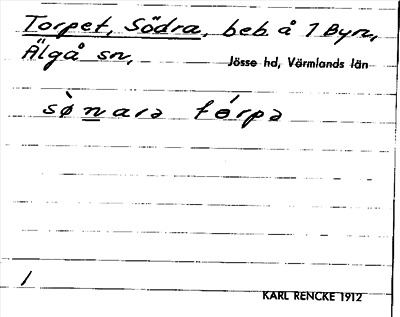 Torpet, Södra, beb. å 1 Byn,
Älgå sn, Jösse hd, Värmlands län
sø̀nara tórpə
1
KARL RENCKE 1912